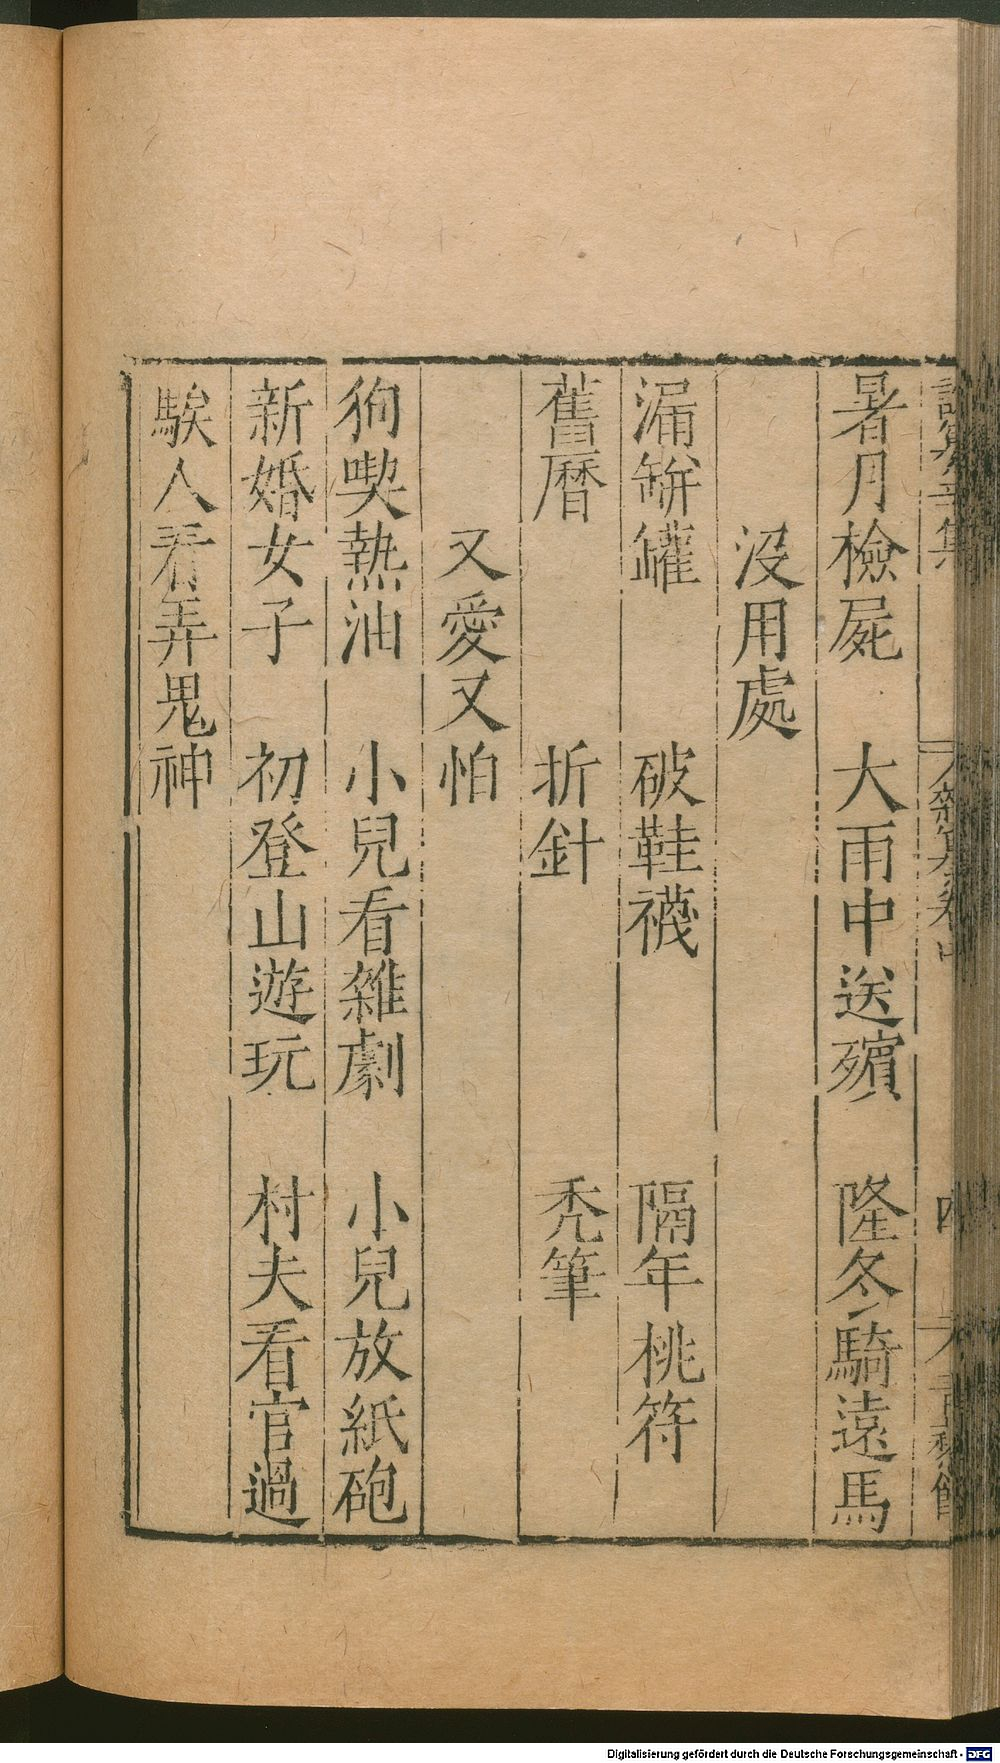 暑月檢屍　大雨中送殯　隆冬騎遠馬
沒用處
漏缾罐　破鞋襪　隔年桃符
舊曆　折針　禿筆
又愛又怕
狗喫熱油　小兒看雜劇　小兒放紙砲
新婚女子　初登山遊玩　村夫看官過
騃人看弄鬼神
Digitalisierung gefördert durch die Deutsche Forschungsgemeinschaft - DFG